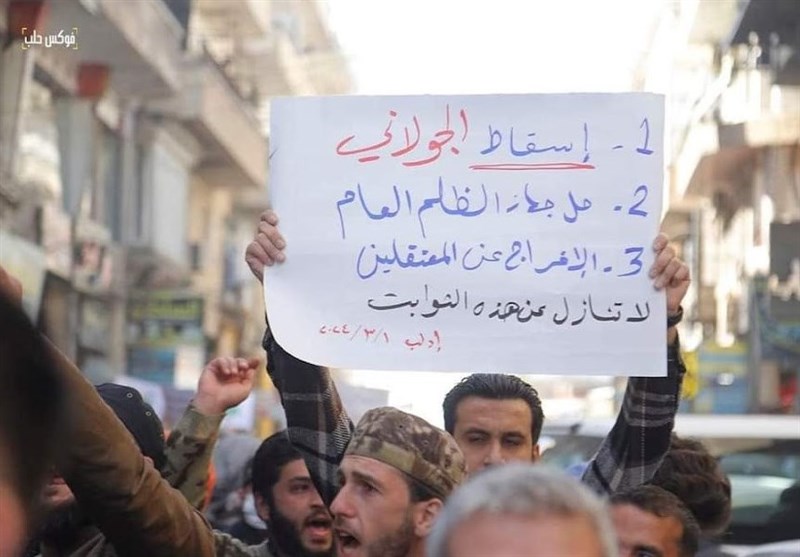 فوكس حلب
1- إسقاط الجولاني
2- حل جهاز الظلم العام
3- الإفراج عن المعتقلين
لا تنازل عن هذه الثوابت
إدلب ٢٠٢٤/٣/١